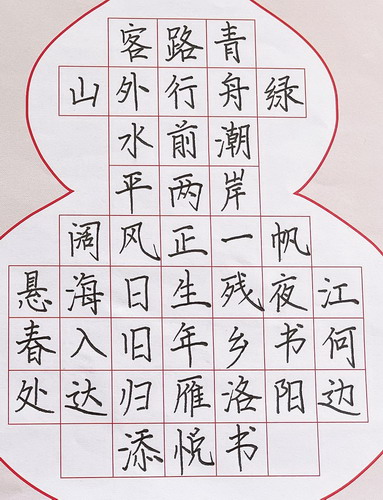 客路青
山外行舟绿
水前潮
平两岸
阔风正一帆
悬海日生残夜江
春入旧年乡书何
处达归雁洛阳边
添悦书